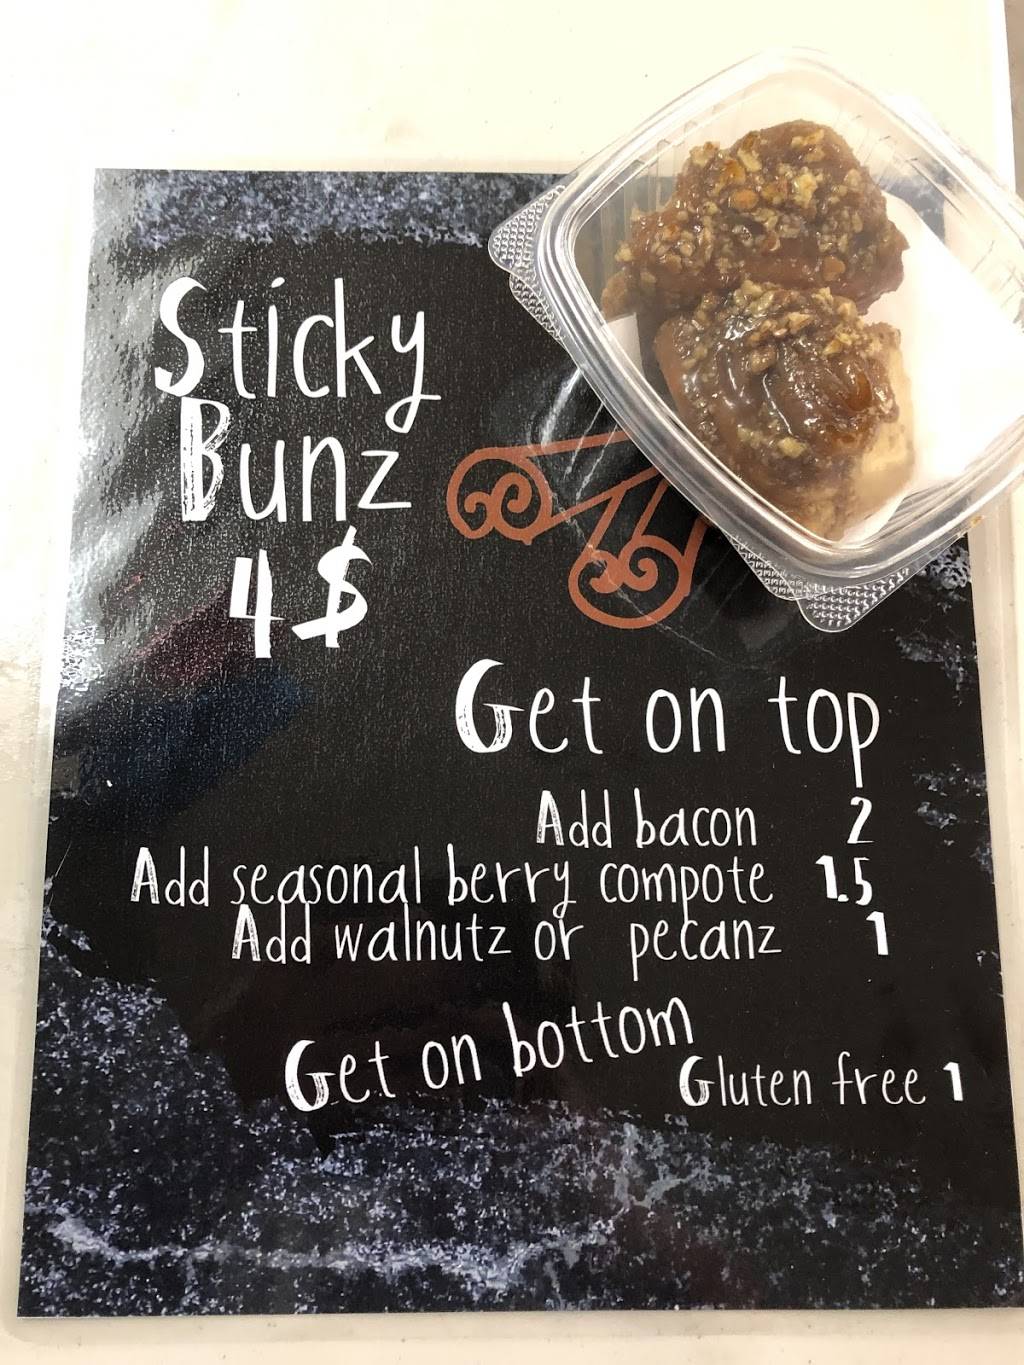 Sticky
Bunz
4$
Get on top
Add bacon 2
Add seasonal berry compote 1.5
Add walnutz or pecanz 1
Get on bottom
Gluten free 1